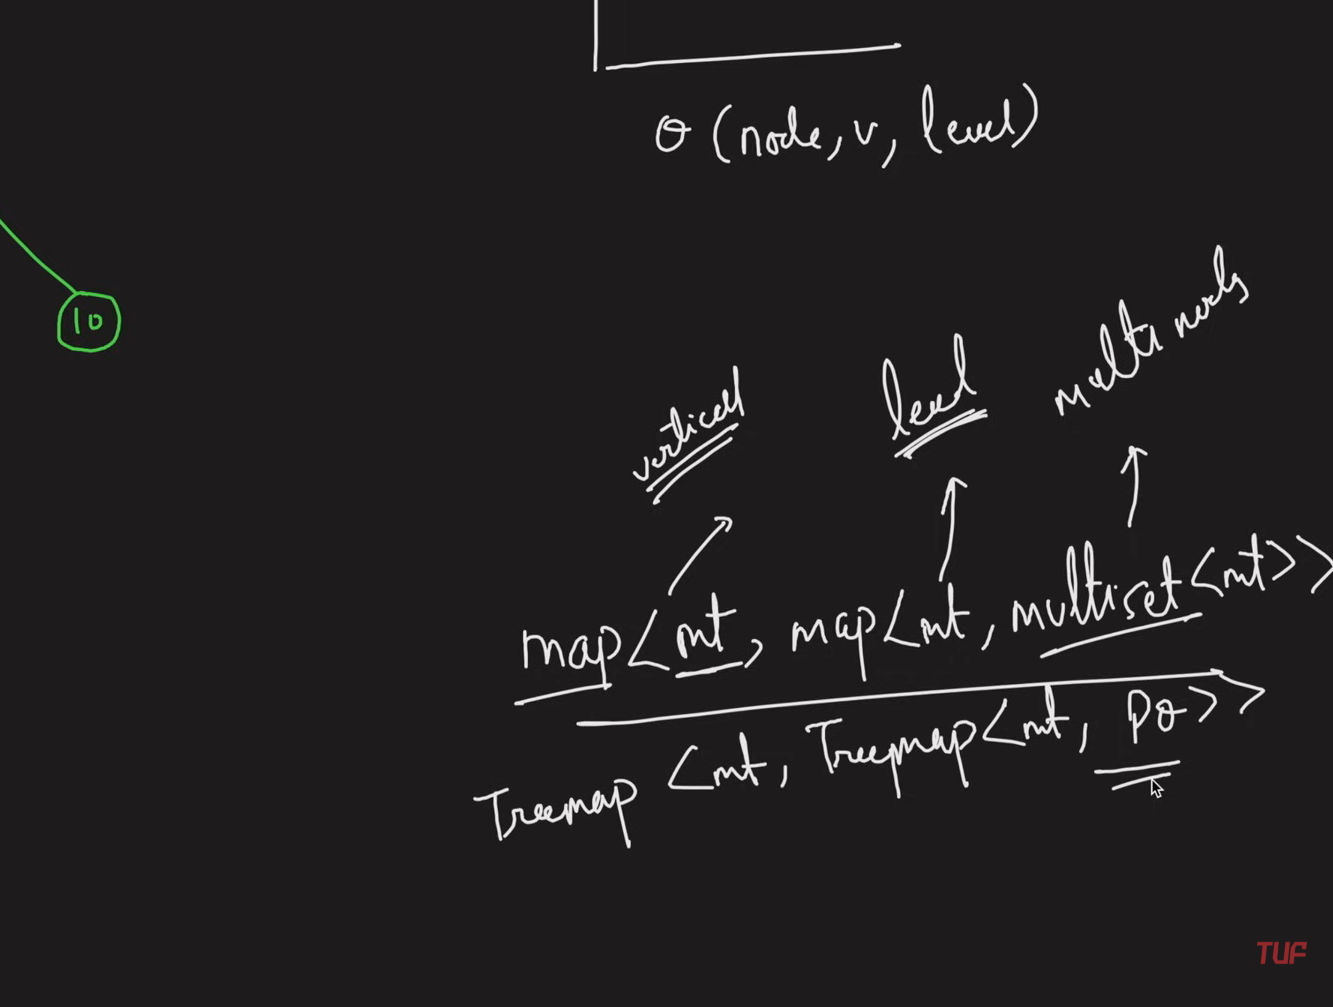 Q (node, v, level)
10
vertical
level
multi nodes
map<int, map<int, multiset<int>>
Treemap <int, Treemap<int, PQ>>
TUF